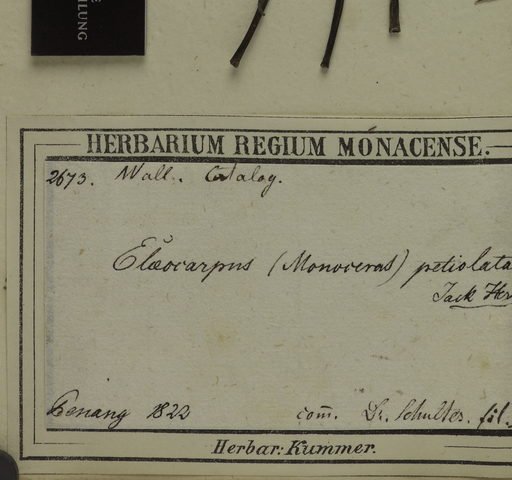 HLUNG
HERBARIUM REGIUM MONACENSE.
2673. Wall. Catalog.
Elæocarpus (Monoceras) petiolata
Jack
Penang 1822 com̄. Dr. Schultes. fil.
Herbar: Kummer.